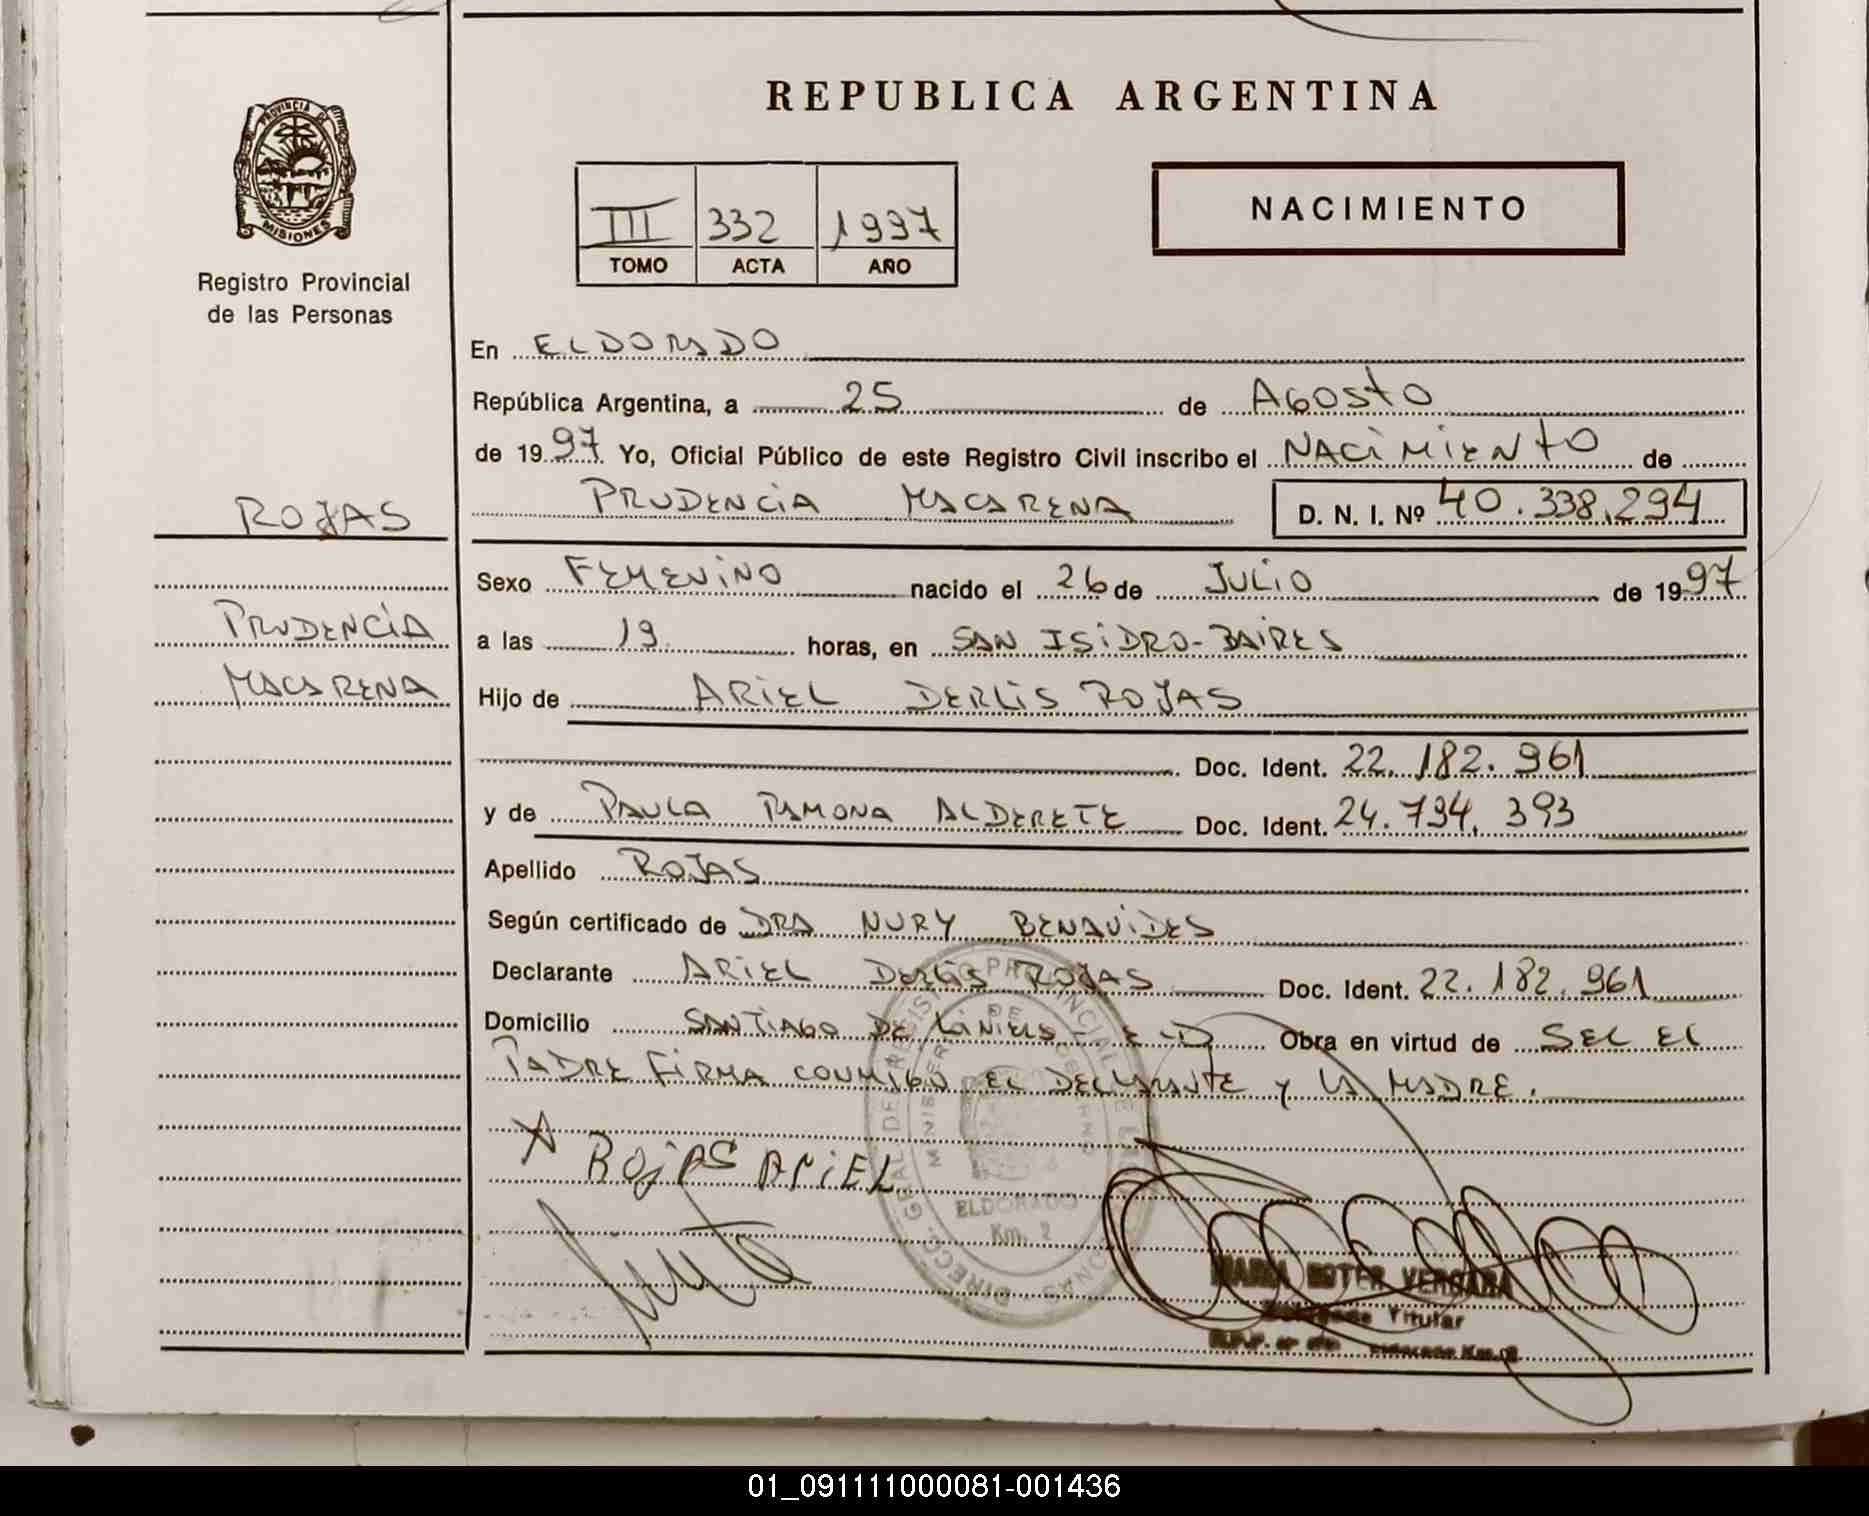 REPUBLICA ARGENTINA
PROVINCIA DE
MISIONES
Registro Provincial
de las Personas
III 332 1997
TOMO ACTA AÑO
NACIMIENTO
En ELDORADO
República Argentina, a 25 de AGOSTO
de 1997 Yo, Oficial Público de este Registro Civil inscribo el NACIMIENTO de
PRUDENCIA MACARENA D. N. I. Nº 40.338.294
ROJAS
PRUDENCIA
MACARENA
Sexo FEMENINO nacido el 26 de JULIO de 1997
a las 19 horas, en SAN ISIDRO-BAIRES
Hijo de ARIEL DERLIS ROJAS
Doc. Ident. 22.182.961
y de PAULA RAMONA ALDERETE Doc. Ident. 24.794.393
Apellido ROJAS
Según certificado de DRA NURY BENAVIDES
Declarante ARIEL DERLIS ROJAS Doc. Ident. 22.182.961
Domicilio SANTIAGO DE LINIERS - ELD Obra en virtud de SEL EL
PADRE FIRMA CONMIGO EL DECLARANTE y LA MADRE.
X ROJAS ARIEL
ELDORADO
Km. 2
VERGARA
Titular
Eldorado Km. 2
01_091111000081-001436